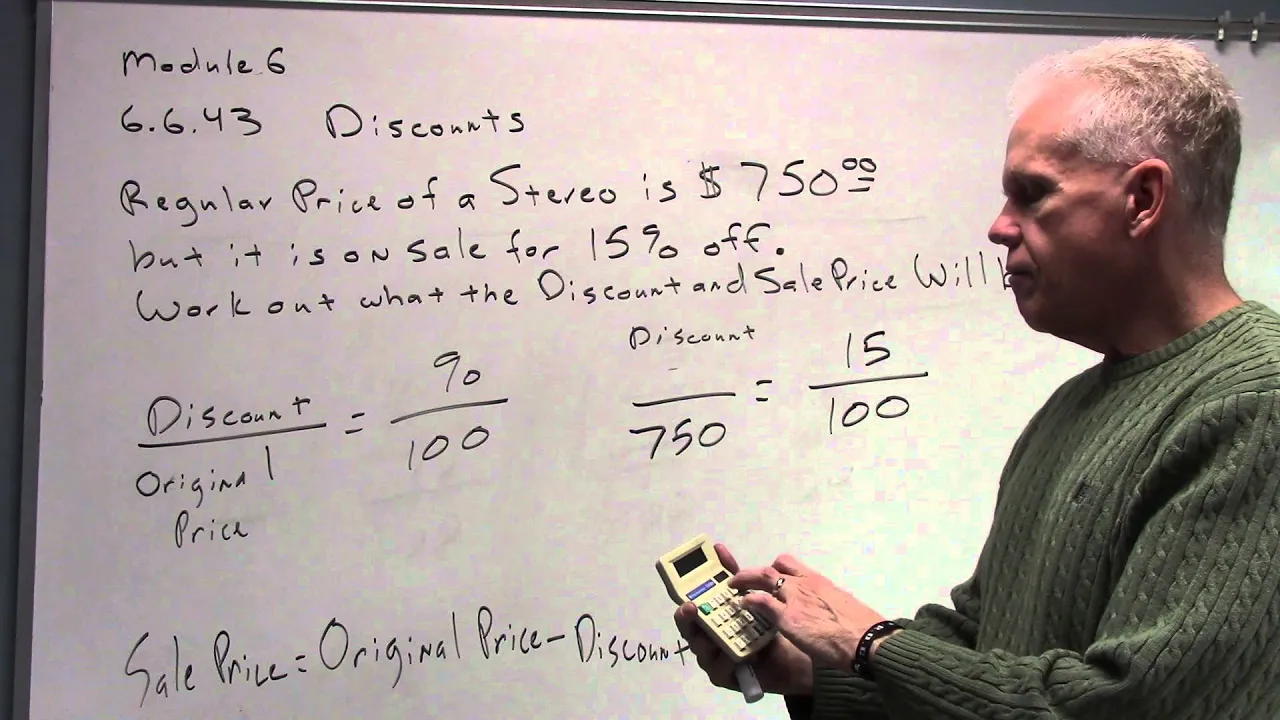 Module 6
6.6.43 Discounts
Regular Price of a Stereo is $750.00
but it is on sale for 15% off.
Work out what the Discount and Sale Price Will
Discount / Original Price = % / 100
Discount / 750 = 15 / 100
Sale Price = Original Price - Discount